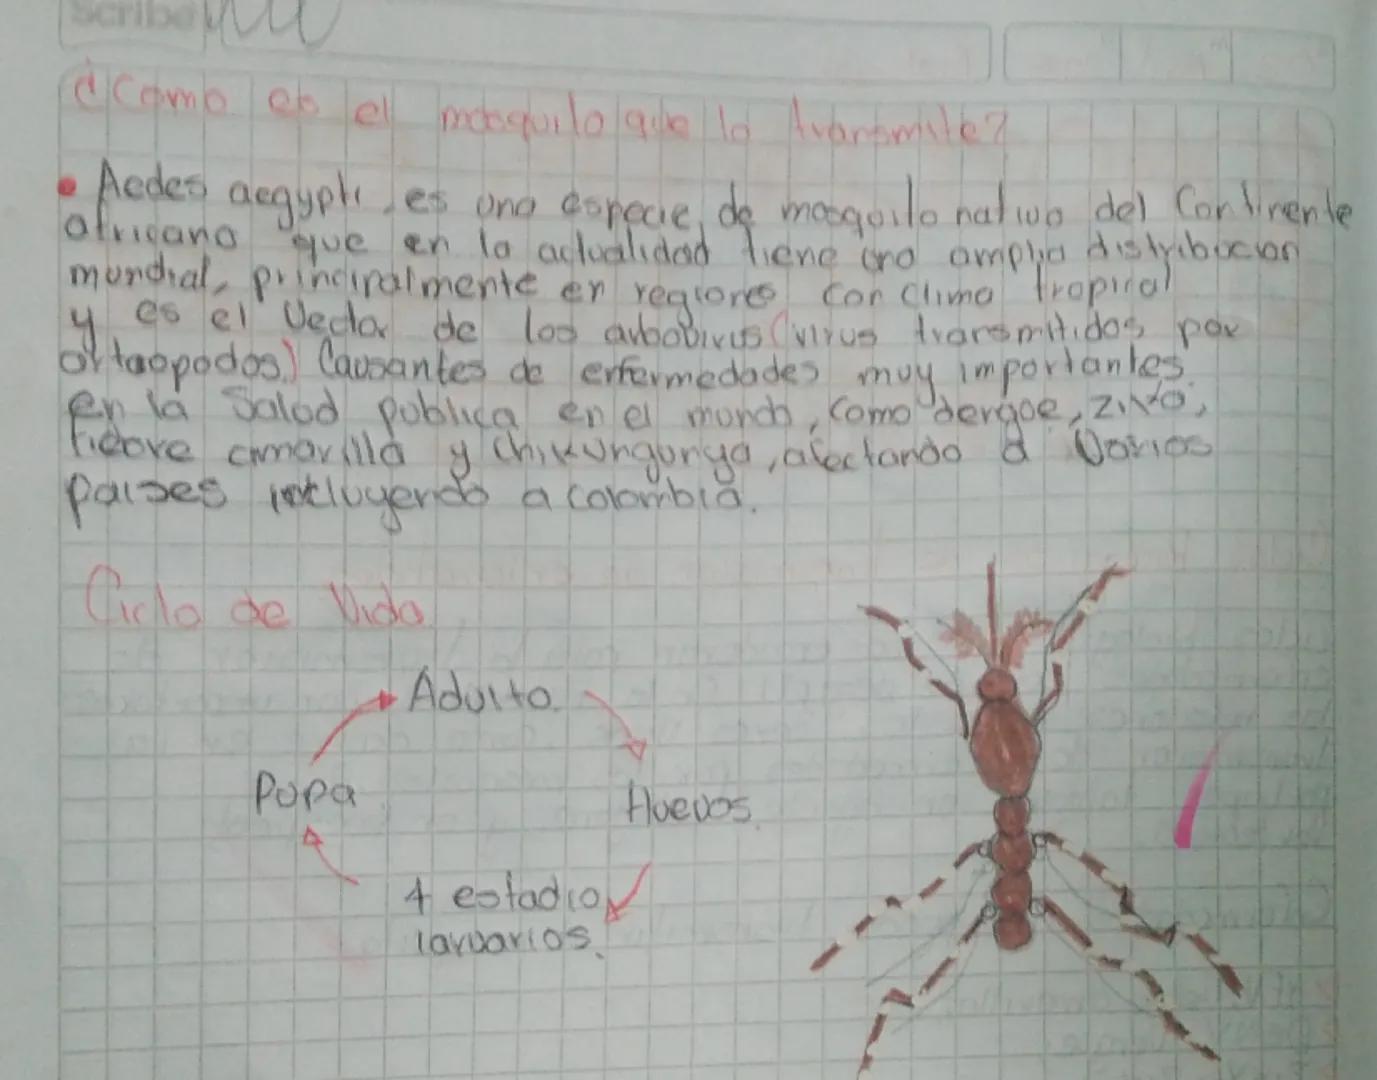 Scribe
¿Como es el mosquito que lo transmite?
• Aedes aegypti, es una especie de mosquito nativo del Continente
africano que en la actualidad tiene una amplia distribucion
mundial, principalmente en regiones con clima tropical
y es el Vector de los arbobirus (virus transmitidos por
ortaopodos) Causantes de enfermedades muy importantes
en la Salud publica en el mundo, como dengue, zika,
fiebre amarilla y chikungunya, afectando a Varios
paises incluyendo a colombia.
Ciclo de Vida
Adulto
Pupa
Huevos.
4 estadio
larvarios.